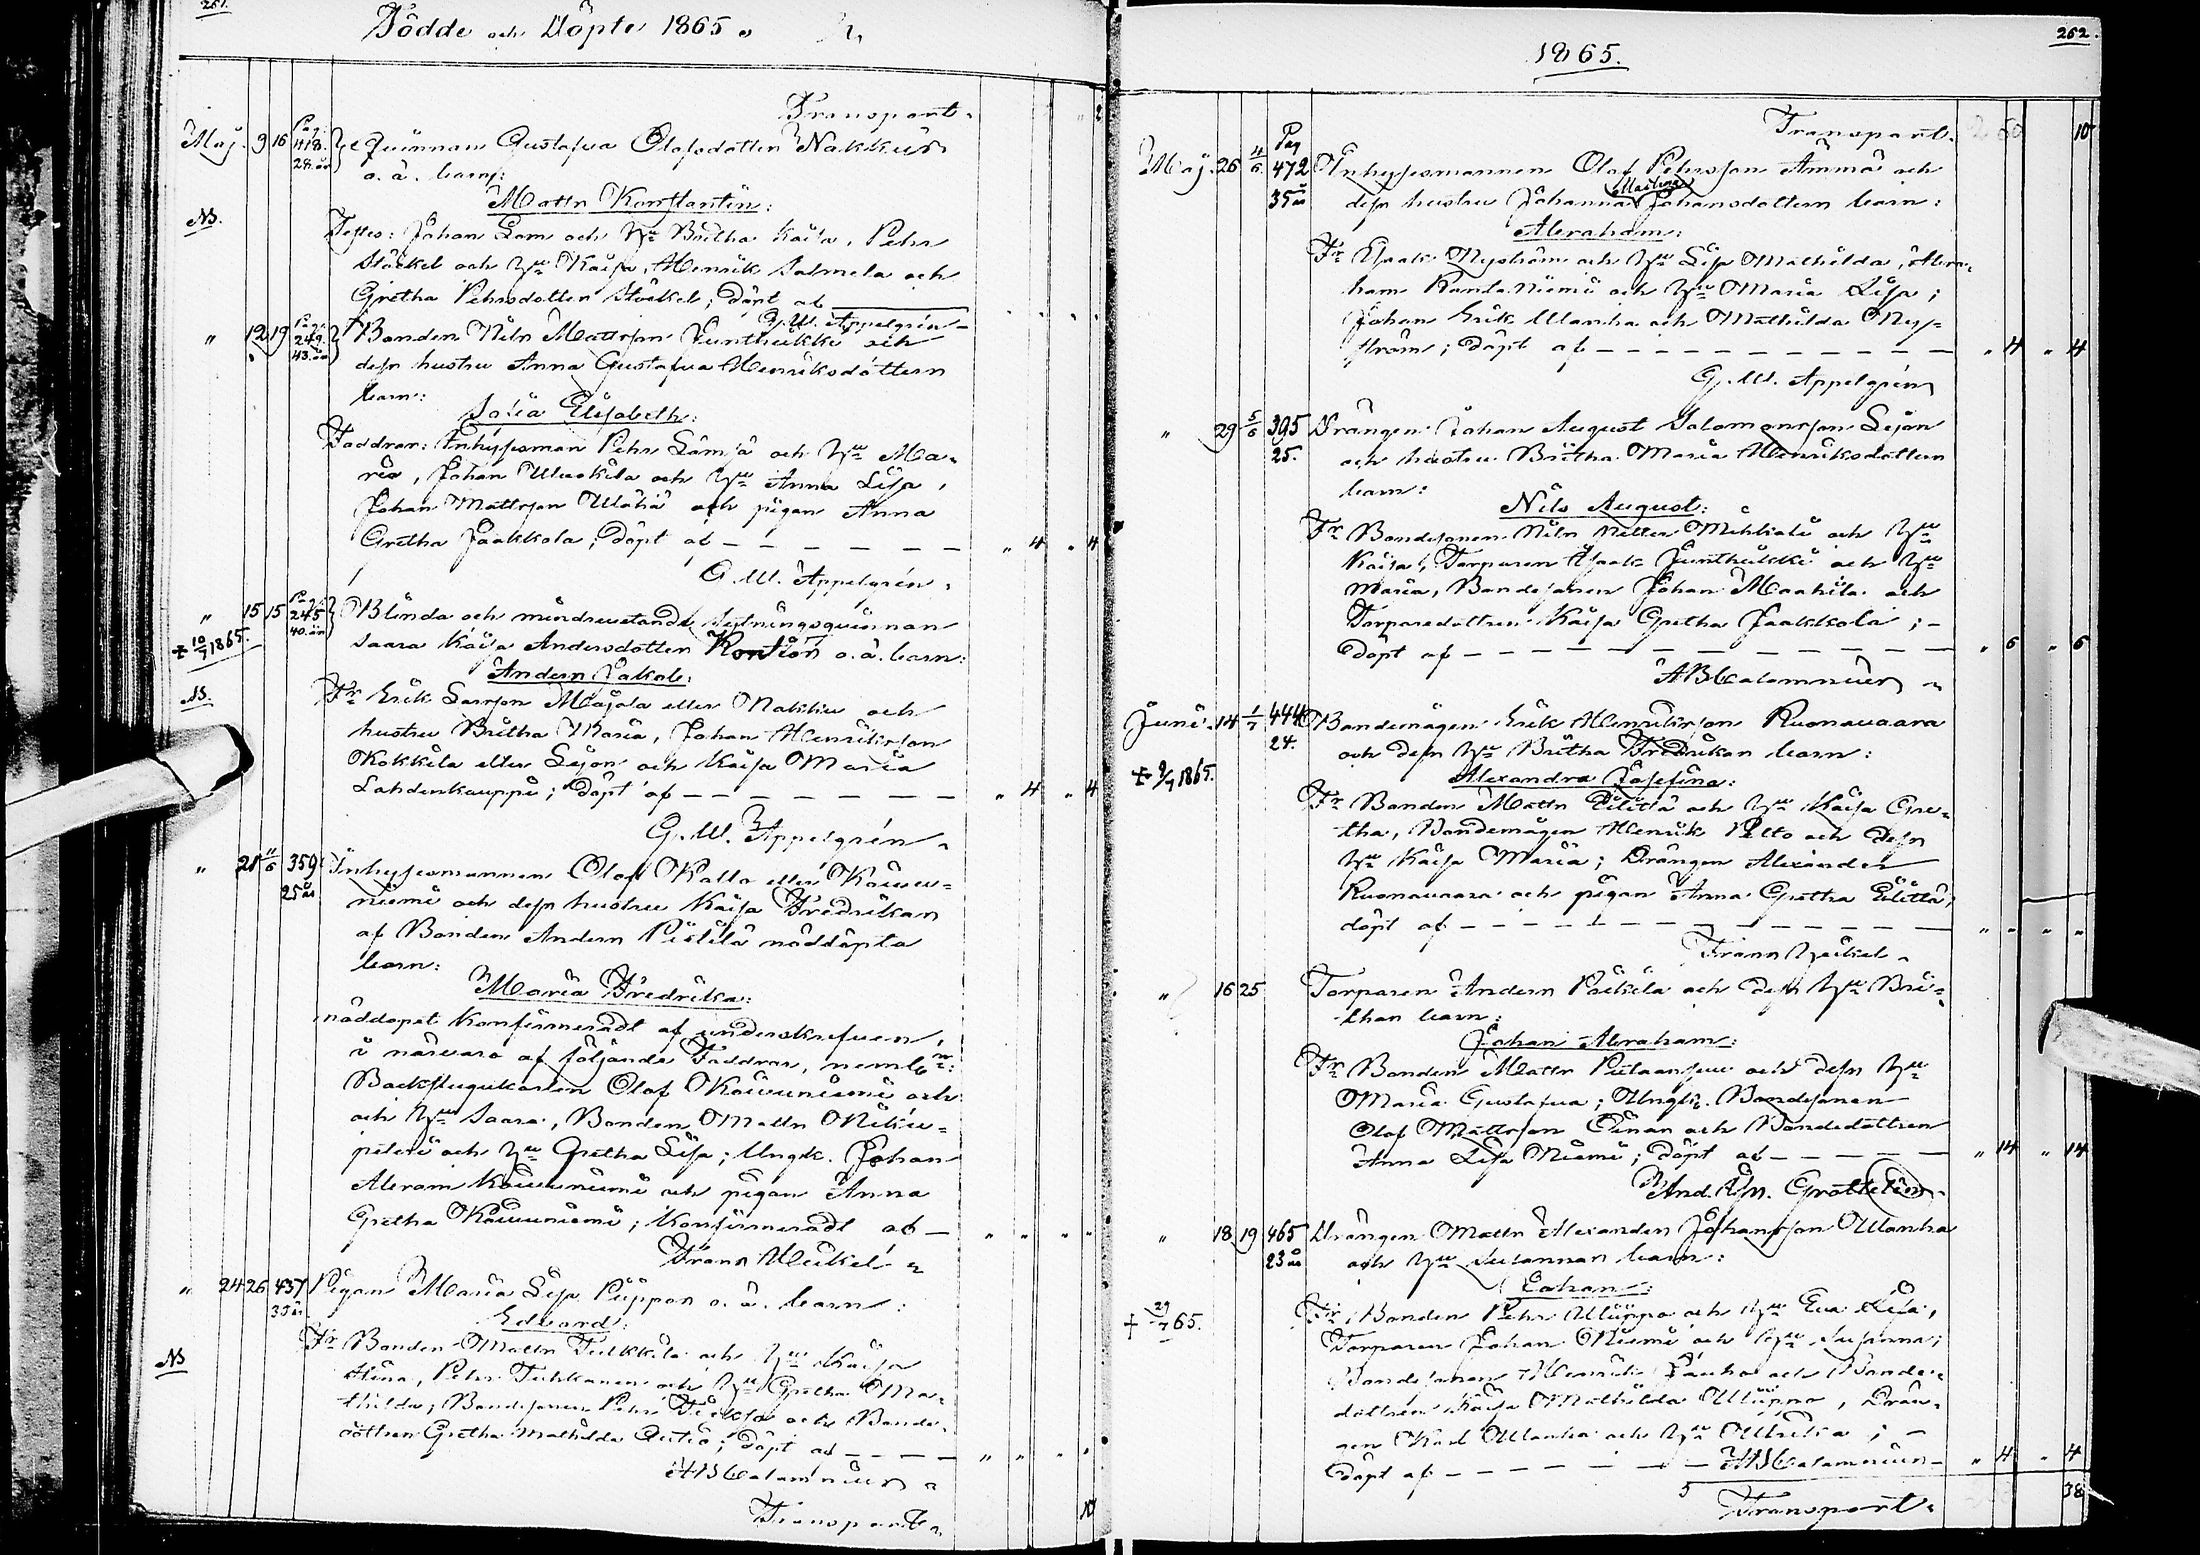 261.
Födde och Döpte 1865.
Transport.
Maj. 9 16 Pag. 418. 28. år Quinnan Gustafva Olofsdotter Nakkus
o. ä. barn:
Matts Konstantin:
NB. Testes: Johan Lam och Hu Britha Kaisa, Pehr
Stöckel och Hu Kaisa, Henrik Salmela och
Gretha Pehrsdotter Stöckel; Döpt af
G. W. Appelgrén
" 12 19 Pag. 249. 43. år Bonden Nils Mattsson Junthikki och
dess hustru Anna Gustafva Henriksdotters
barn:
Sofia Elisabeth:
Faddrar: Inhysesman Pehr Lämsä och Hu Ma-
ria, Johan Uluokila och Hu Anna Lisa,
Johan Mattsson Ulähä och pigan Anna
Gretha Jaakkola; Döpt af — — — — — — " 4 " 4
G. W. Appelgrén.
" 15 15 Pag. 245 40. år Blinda och mindrevetande Sytningsqvinnan
+ 10/7 1865. Saara Kaisa Andersdotter Kontiön o. ä. barn:
Anders Jakob:
NB. Fr Erik Larsson Majala eller Nakku och
hustru Britha Maria, Johan Henriksson
Kokkila eller Lejon och Kaisa Maria
Lahdenkauppi; Döpt af — — — — — — " 4 " 4
G. W. Appelgrén.
" 21 11/6 359 25 år Inhysesmannen Olof Kalla eller Kaiwu-
niemi och dess hustru Kaisa Fredrikan
af Bonden Anders Pietilä nöddöpta
barn:
Maria Fredrika:
nöddopet Konfirmeradt af underskrefven,
i närvaro af följande Faddrar, neml:
Backstugukarlen Olof Kaiwuniemi och
och Hu Saara, Bonden Matts Niku-
peteri och Hu Gretha Lisa; Ungk. Johan
Abram Kaiwuniemi och pigan Anna
Gretha Kaiwuniemi; Konfirmeradt af — " " " "
Frans Heikel
" 24 26 437 35 år Pigan Maria Lisa Piippon o. ä. barn:
Edvard:
NB Fr Bonden Matts Tulkkila och Hu Kaisa
Stina, Pehr Tuhkanen och Hu Gretha Ma-
thilda; Bondesonen Pehr och Bonde-
dottren Gretha Mathilda Autio; Döpt af — — — " " " "
AB Calamnius
Transport. 10
262.
1865.
Transport. 10
Maj. 26 4/6 Pag 472 35 år Inhysesmannen Olof Pehrsson Ämmä och
Mathilda
dess hustru Johanna Johansdotters barn:
Abraham:
Fr Isaak Nyström och Hu Lisa Mathilda, Abra-
ham Rantaniemi och Hu Maria Lisa;
Johan Erik Ulanha och Mathilda Ny-
ström; Döpt af — — — — — — — — " 4 " 4
G. W. Appelgrén
" 29 5/6 395 25. Drängen Johan August Salomonsson Lejon
och hustru Britha Maria Henriksdotters
barn:
Nils August:
Fr Bondesonen Nils Petter Mehkale och Hu
Kaisa, Torparen Isaak Junthikki och Hu
Maria, Bondesonen Johan Maahila och
Torparedottren Kaisa Gretha Jaakkola; —
Döpt af — — — — — — — — — " 6 " 6
AB Calamnius
Juni. 14 1/7 444 24. Bondemågen Erik Henriksson Ruonavaara
och dess Hu Britha Fredrikan barn:
+ 9/7 1865. Alexandra Josefina:
Fr Bonden Matts Eilittä och Hu Kaisa Gre-
tha, Bondemågen Henrik Pelto och dess
Hu Kaisa Maria; Drängen Alexander
Ruonavaara och pigan Anna Gretha Eilittä;
döpt af — — — — — — — — — " " " "
Frans Heikel
" 16 25 Torparen Anders Paikila och dess Hu Bri-
than barn:
Johan Abraham:
Fr Bonden Matts Pietaansuu och dess Hu
Maria Gustafva; Ungk. Bondesonen
Olof Mattsson Oinas och Bondedottren
Anna Lisa Niemi; Döpt af — — — — " 14 " 14
And. Joh. Grotteliön
" 18 19 465 23 år Drängen Matts Alexander Johansson Ulanha
och Hu Susannan barn:
Johan:
+ 29/7 65. Fr Bonden Pehr Uliippo och Hu Eva Lisa,
Torparen Johan Niemi och Hu Susanna;
Bondesonen Henrik Jauho och Bonde-
dottren Kaisa Mathilda Uliippo, Drän-
gen Karl Ulanha och Hu Ulrika; —
Döpt af — — — — — — AB Calamnius " 4 " 4
5 38
Transport.